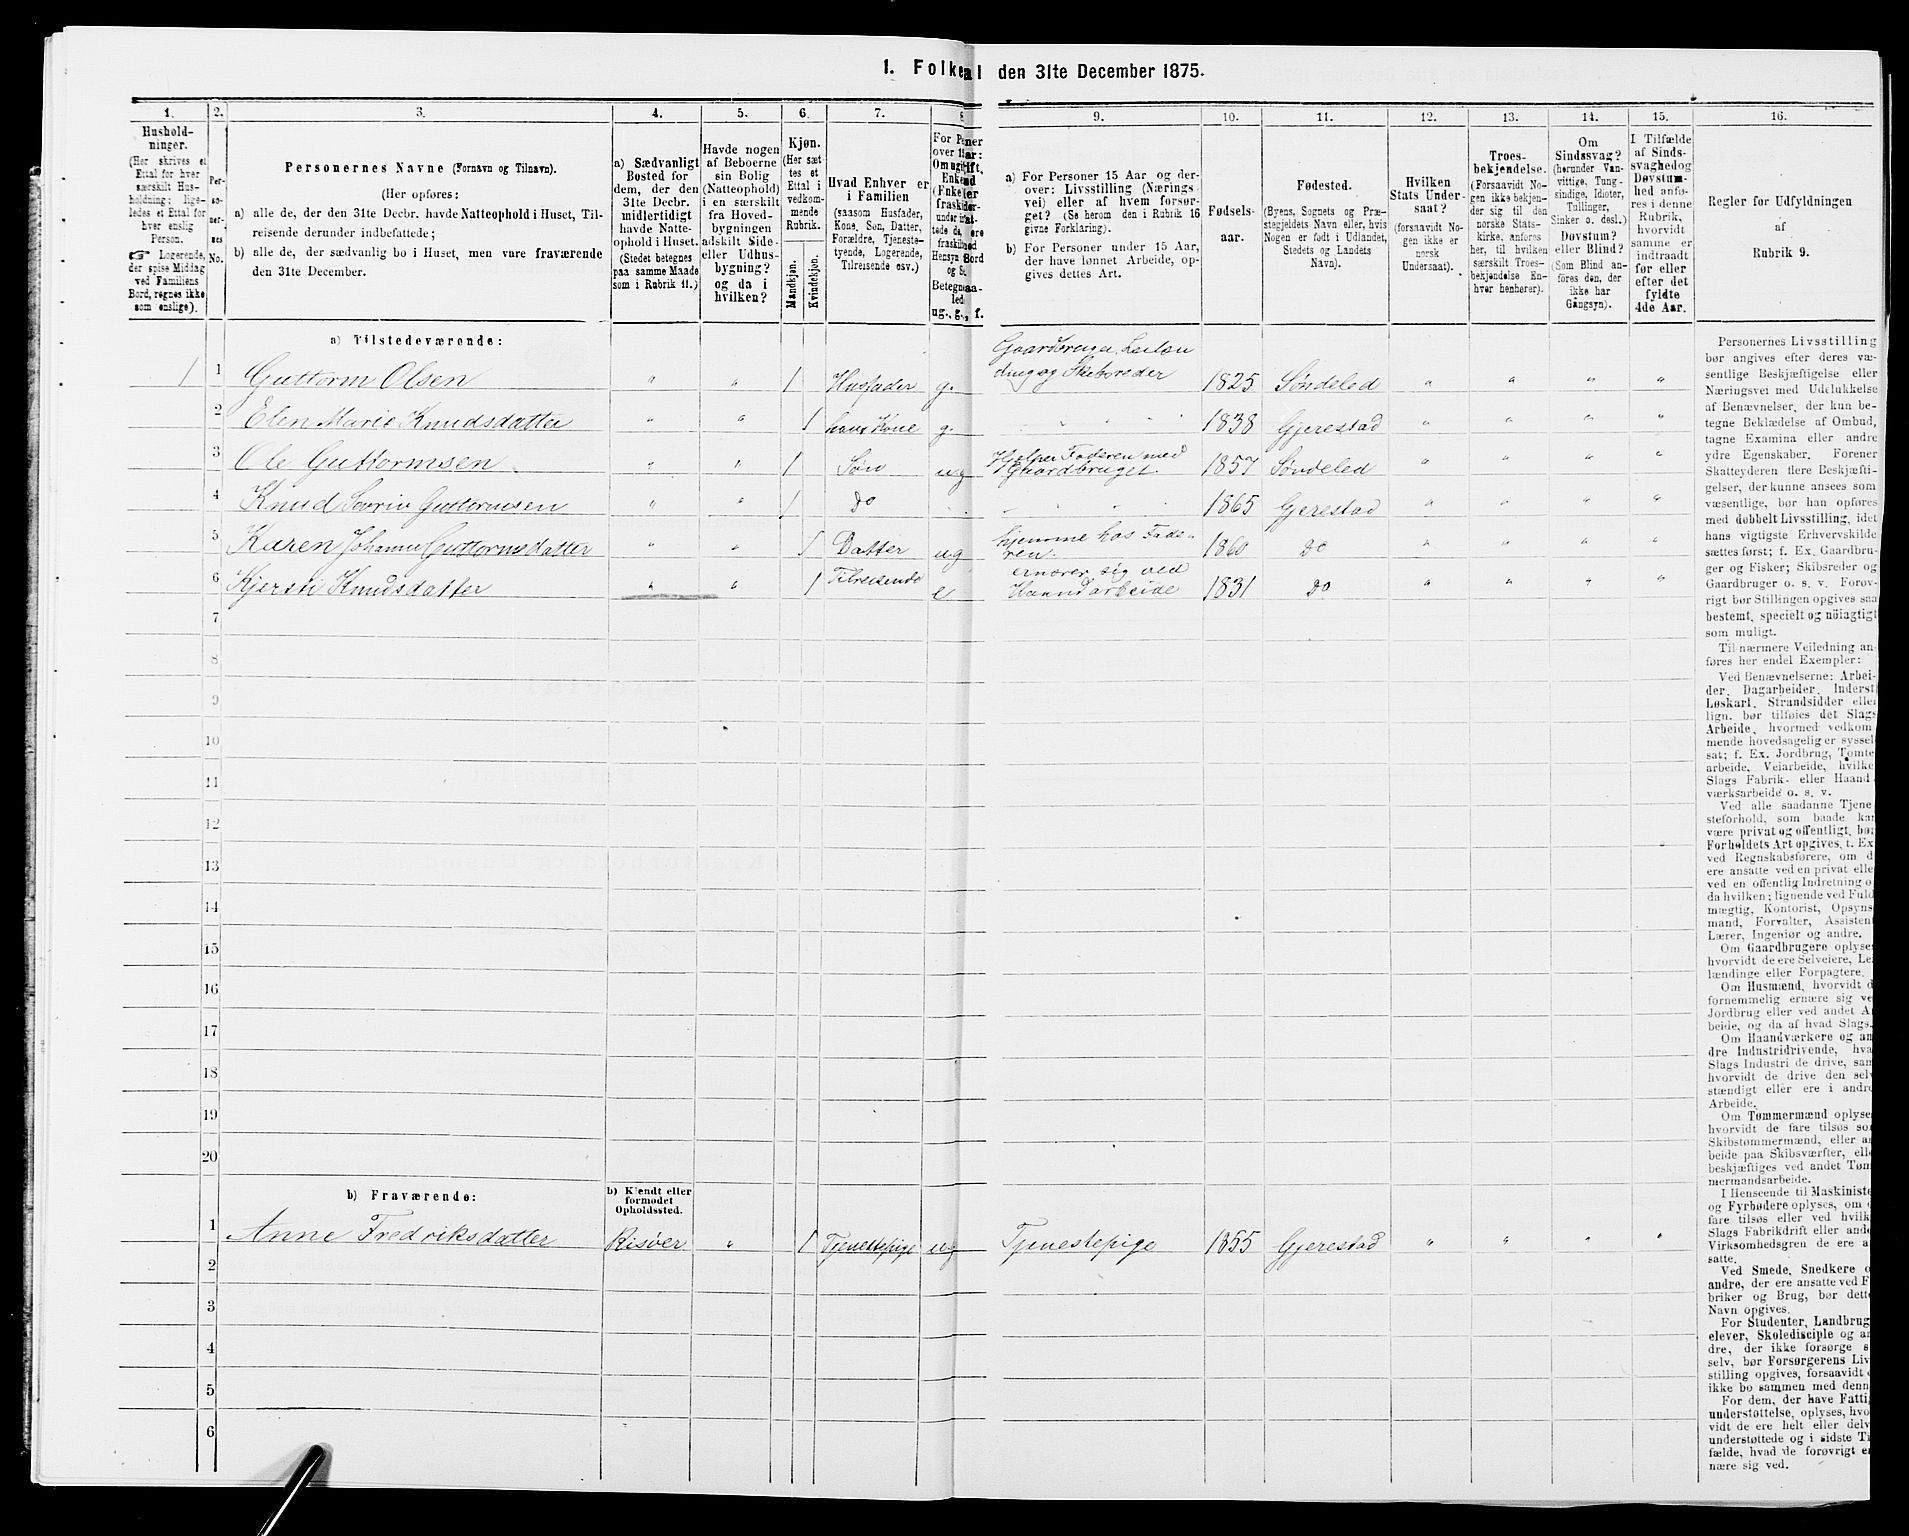 1. Folketal den 31te December 1875.
1. 2. 3. 4. 5. 6. 7. 8. 9. 10. 11. 12. 13. 14. 15. 16.
Hushold-
ninger.
(Her skrives et
Ettal for hver
særskilt Hus-
holdning; lige-
ledes et Ettal for
hver enslig
Person.
☞ Logerende,
der spise Middag
ved Familiens
Bord, regnes ikke
som enslige).
Per-
so-
ner-
nes
No.
Personernes Navne (Fornavn og Tilnavn).
(Her opføres:
a) alle de, der den 31te Decbr. havde Natteophold i Huset, Til-
reisende derunder indbefattede;
b) alle de, der sædvanlig bo i Huset, men vare fraværende
den 31te December.
a) Sædvanligt
Bosted for
dem, der den
31te Decbr.
midlertidigt
havde Natte-
ophold i Huset.
(Stedet betegnes
paa samme Maade
som i Rubrik 11.)
Havde nogen
af Beboerne
sin Bolig
(Natteophold)
i en særskilt
fra Hoved-
bygningen
adskilt Side-
eller Udhus-
bygning?
og da i
hvilken?
Kjøn.
(Her sæt-
tes et
Ettal i
vedkom-
mende
Rubrik.
Mandkjøn.
Kvindekjøn.
Hvad Enhver er
i Familien
(saasom Husfader,
Kone, Søn, Datter,
Forældre, Tjeneste-
tyende, Logerende,
Tilreisende osv.)
ug., g., f.
a) For Personer 15 Aar og der-
over: Livsstilling (Nærings-
vei) eller af hvem forsør-
get? (Se herom den i Rubrik 16
givne Forklaring).
b) For Personer under 15 Aar,
der have lønnet Arbeide, op-
gives dettes Art.
Fødsels-
aar.
Fødested.
(Byens, Sognets og Præ-
stegjeldets Navn eller, hvis
Nogen er født i Udlandet,
Stedets og Landets
Navn).
Hvilken
Stats Under-
saat?
(forsaavidt No-
gen ikke er
norsk
Undersaat).
Troes-
bekjendelse.
(Forsaavidt No-
gen ikke bekjen-
der sig til den
norske Stats-
kirke, anføres
her, til hvilken
særskilt Troes-
bekjendelse En-
hver henhører).
Om
Sindssvag?
(herunder Van-
vittige, Tung-
sindige, Idioter,
Tullinger,
Sinker o. desl.)
Døvstum?
eller Blind?
(Som Blind an-
føres den, der
ikke har
Gangsyn).
I Tilfælde
af Sinds-
svaghed og
Døvstum-
hed anfø-
res i denne
Rubrik,
hvorvidt
samme er
indtraadt
før eller
efter det
fyldte
4de Aar.
Regler for Udfyldningen
af
Rubrik 9.
a) Tilstedeværende:
1 1 Guttorm Olsen " " 1 Husfader g. Gaardbruger, Leilæn
ding og Skibsreder 1825 Søndeled " " " "
2 Elen Marie Knudsdatter " " 1 hans Kone g. " " " 1838 Gjerestad " " " "
3 Ole Guttormsen " " 1 Søn ug Hjelper Faderen med
Gaardbruget. 1857 Søndeled " " " "
4 Knud Sovrin Guttormsen " " 1 do " " " 1865 Gjerestad " " " "
5 Karen Johanne Guttormsdatter " " 1 Datter ug hjemme hos Fade-
ren. 1860 do " " " "
6 Kjersti Knudsdatter " " 1 Tilreisende e ernærer sig ved
Haandarbeide 1831 do " " " "
7
8
9
10
11
12
13
14
15
16
17
18
19
20
b) Fraværende:
b) Kjendt eller
formodet
Opholdssted.
1 Anne Fredriksdatter Risøer " 1 Tjenestepige ug Tjenestepige 1855 Gjerestad " " " "
2
3
4
5
6
Personernes Livsstilling
bør angives efter deres væ-
sentlige Beskjæftigelse eller
Næringsvei med Udelukkelse
af Benævnelser, der kun be-
tegne Beklædelse af Ombud,
tagne Examina eller andre
ydre Egenskaber. Forener
Skatteyderen flere Beskjæfti-
gelser, der kunne ansees som
væsentlige, bør han opføres
med dobbelt Livsstilling, idet
hans vigtigste Erhvervskilde
sættes først; f. Ex. Gaardbru-
ger og Fisker; Skibsreder og
Gaardbruger o. s. v. Forøv-
rigt bør Stillingen opgives saa
bestemt, specielt og nöiagtigt
som muligt.
Til nærmere Veiledning an-
føres her endel Exempler:
Ved Benævnelserne: Arbei-
der, Dagarbeider, Inderst,
Løskarl, Strandsidder eller
lign. bør tilføies det Slags
Arbeide, hvormed vedkom-
mende hovedsagelig er syssel
sat; f. Ex. Jordbrug, Tømte
arbeide, Veiarbeide, hvilke
Slags Fabrik- eller Haand
værksarbeide o. s. v.
Ved alle saadanne Tjene
steforhold, som baade kan
være privat og offentligt, bør
Forholdets Art opgives, t. Ex
ved Regnskabsførere, om d
ere ansatte ved en privat elle
ved en offentlig Indretning o
da hvilken; lignende ved Fuld
mægtig, Kontorist, Opsyns
mand, Forvalter, Assistent
Lærer, Ingeniør og andre.
Om Gaardbrugere oplyse
hvorvidt de ere Selveiere, Le
lændinge eller Forpagtere.
Om Husmænd, hvorvidt d
fornemmelig ernære sig ve
Jordbrug eller ved andet A
beide, og da af hvad Slags.
Om Haandværkere og an
dre Industridrivende, hva
Slags Industri de drive, sam
hvorvidt de drive den selv
stændigt eller ere i andre
Arbeide.
Om Tømmermænd oplyse
hvorvidt de fare tilsøs so
Skibstømmermænd, eller a
beide paa Skibsværfter, elle
beskjæftiges ved andet Tøm
mermandsarbeide.
I Henseende til Maskiniste
og Fyrbødere oplyses, om
fare tilsøs eller ved hvilk
Slags Fabrikdrift eller ande
Virksomhedsgren de ere a
satte.
Ved Smede, Snedkere o
andre, der ere ansatte ved F
briker og Brug, bør dette
Navn opgives.
For Studenter, Landbrug
elever, Skoledisciple og an
dre, der ikke forsørge s
selv, bør Forsørgerens Liv
stilling opgives, forsaavidt
ikke bo sammen med denn
For dem, der have Fatti
understøttelse, oplyses, hvo
vidt de ere helt eller delv
understøttede og i sidste Ti
fælde, hvad de forøvrigt er
nære sig ved.